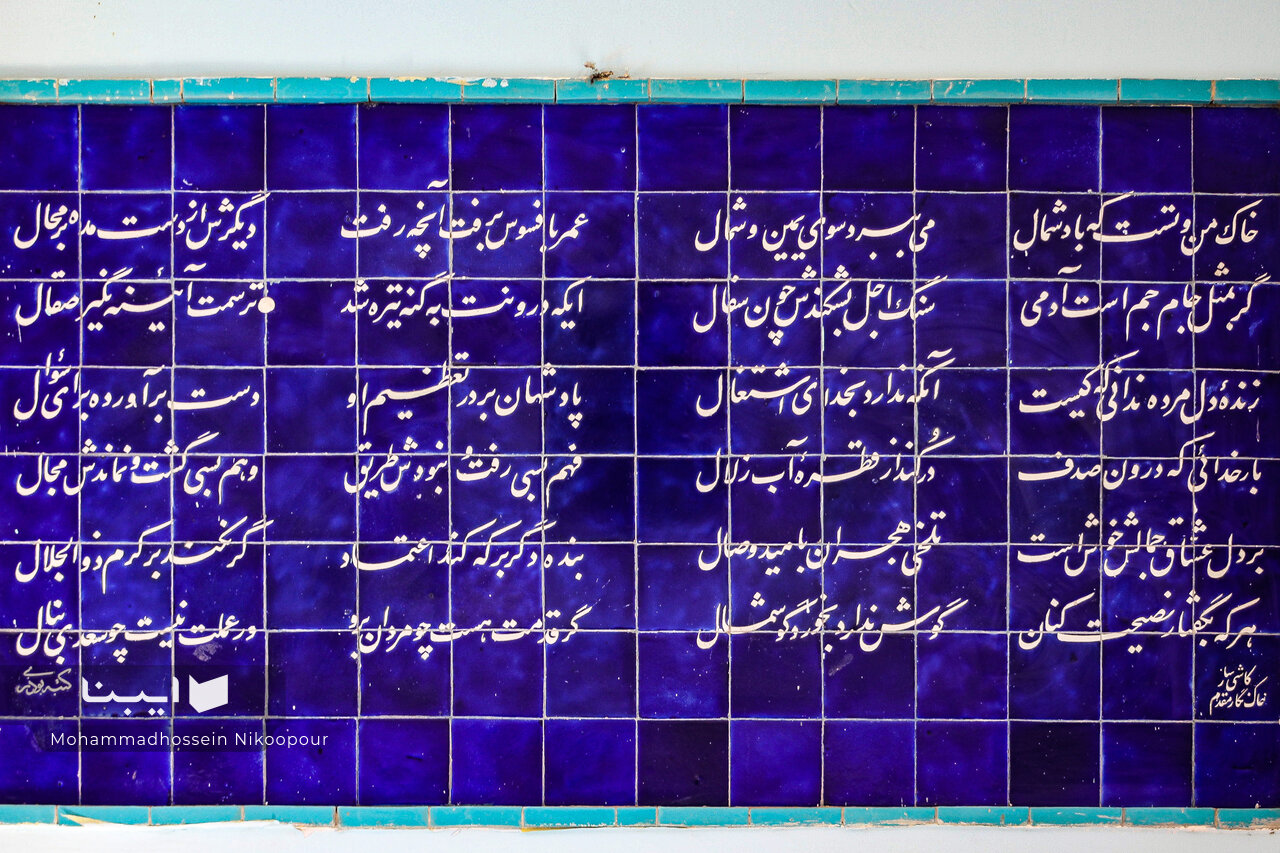 خاک من و تست که باد شمال می برد سوی یمین و شمال عمر بافسوس برفت آنچه رفت دیگرش از دست مده بر محال
گر بمثل جام جم است آدمی سنگ اجل بشکندش چون سفال ایکه درونت به گنه تیره شد ترسمت آئینه نگیرد صقال
زندهٔ دل مرده ندانی که کیست آنکه ندارد بخدای اشتغال پادشهان بر در تعظیم او دست برآورده برای سؤال
بارخدائی که درون صدف دُر کند از قطرهٔ آب زلال فهم بسی رفت و نبودش طریق وهم بسی گشت و نماندش مجال
بر دل عشاق جمالش خوش است تلخی هجران بامید وصال بنده دگر بر که کند اعتماد گر نکند بر کرم ذوالجلال
هر که بگفتار نصیحت کنان گوش ندارد بخورد گوشمال گر قدمت هست چو مردان برو ور عملت نیست چو سعدی بنال
کاشی ساز
خاک نگار مقدم
کتبه بوذری
ایبنا
Mohammadhossein Nikoopour